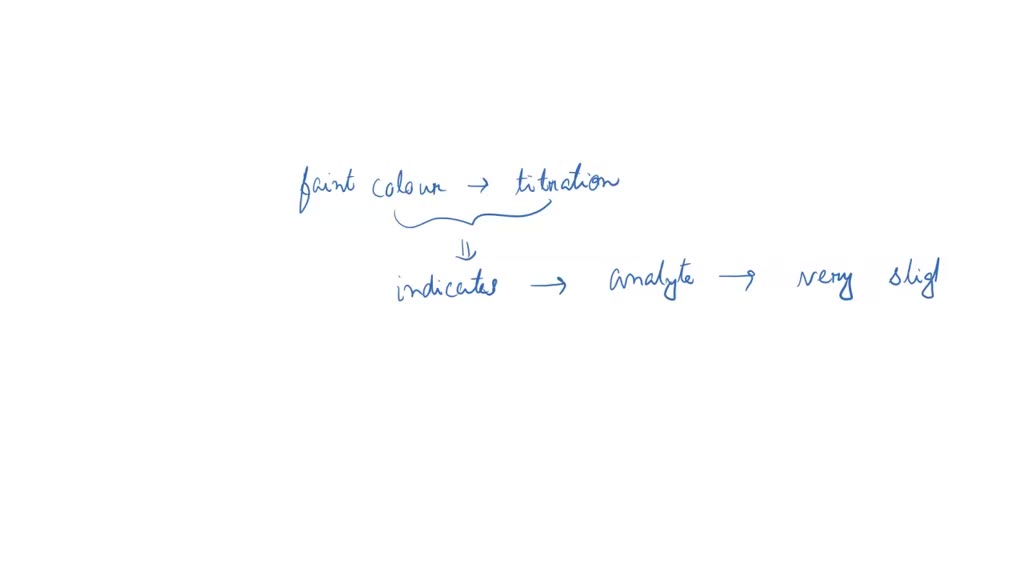 faint colour → titration
⇓
indicates → analyte → very sligh